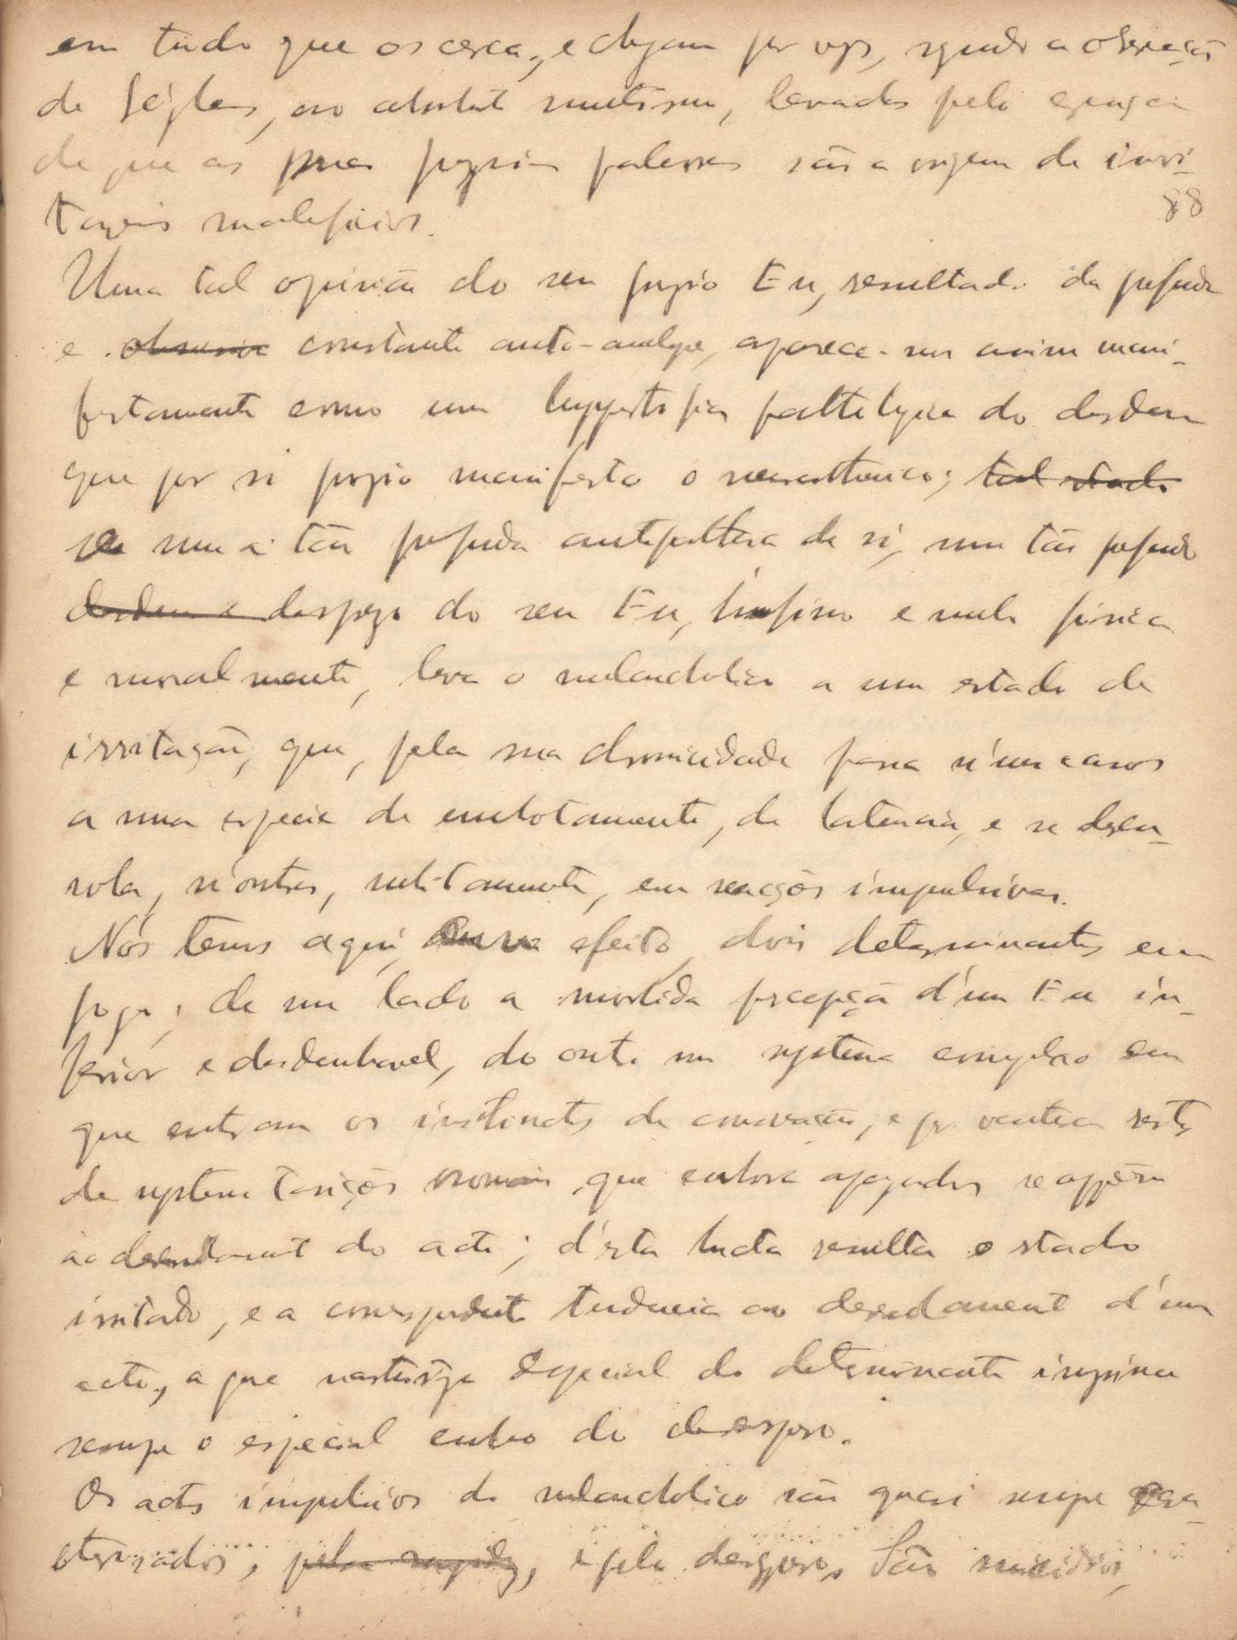 em tudo que os cerca, e chegam por vezes, segundo a observação
de Séglas, ao absoluto mutismo, levados pela crença
de que as suas proprias palavras são a origem de inevi-
taveis maleficios.
88
Uma tal opinião do seu proprio Eu, resultado da profunda
e constante auto-analyse, aparece-nos assim mani-
festamente como uma hypertrofia pathologica do desdem
que por si proprio manifesta o neurasthenico; tal estado
uma tão profunda antipathia de si, um tão profundo
desdem e desprezo do seu Eu, infimo e nulo fisica
e moralmente, leva o melancholico a um estado de
irritação, que, pela sua chronicidade passa n'uns casos
a uma especie de embotamento, de latencia, e se desen-
rola, n'outros, subitamente, em reacções impulsivas.
Nós temos aqui, efeito, dois determinantes em
jogo; de um lado a morbida percepção d'um Eu in-
ferior e desdenhavel, do outro um systema complexo em
que entram os instinctos de conservação, e por ventura restos
de systematisações normais, que embora apagados se oppõem
ao desenrolamento do acto; d'esta lucta resulta o estado
irritado, e a correspondente tendencia ao desenrolamento d'um
acto, a que a natureza especial do determinante imprime
sempre o especial cunho do desespero.
Os actos impulsivos do melancholico são quasi sempre cara-
cterisados, pela rapidez, e pelo desespero. São suicidios,